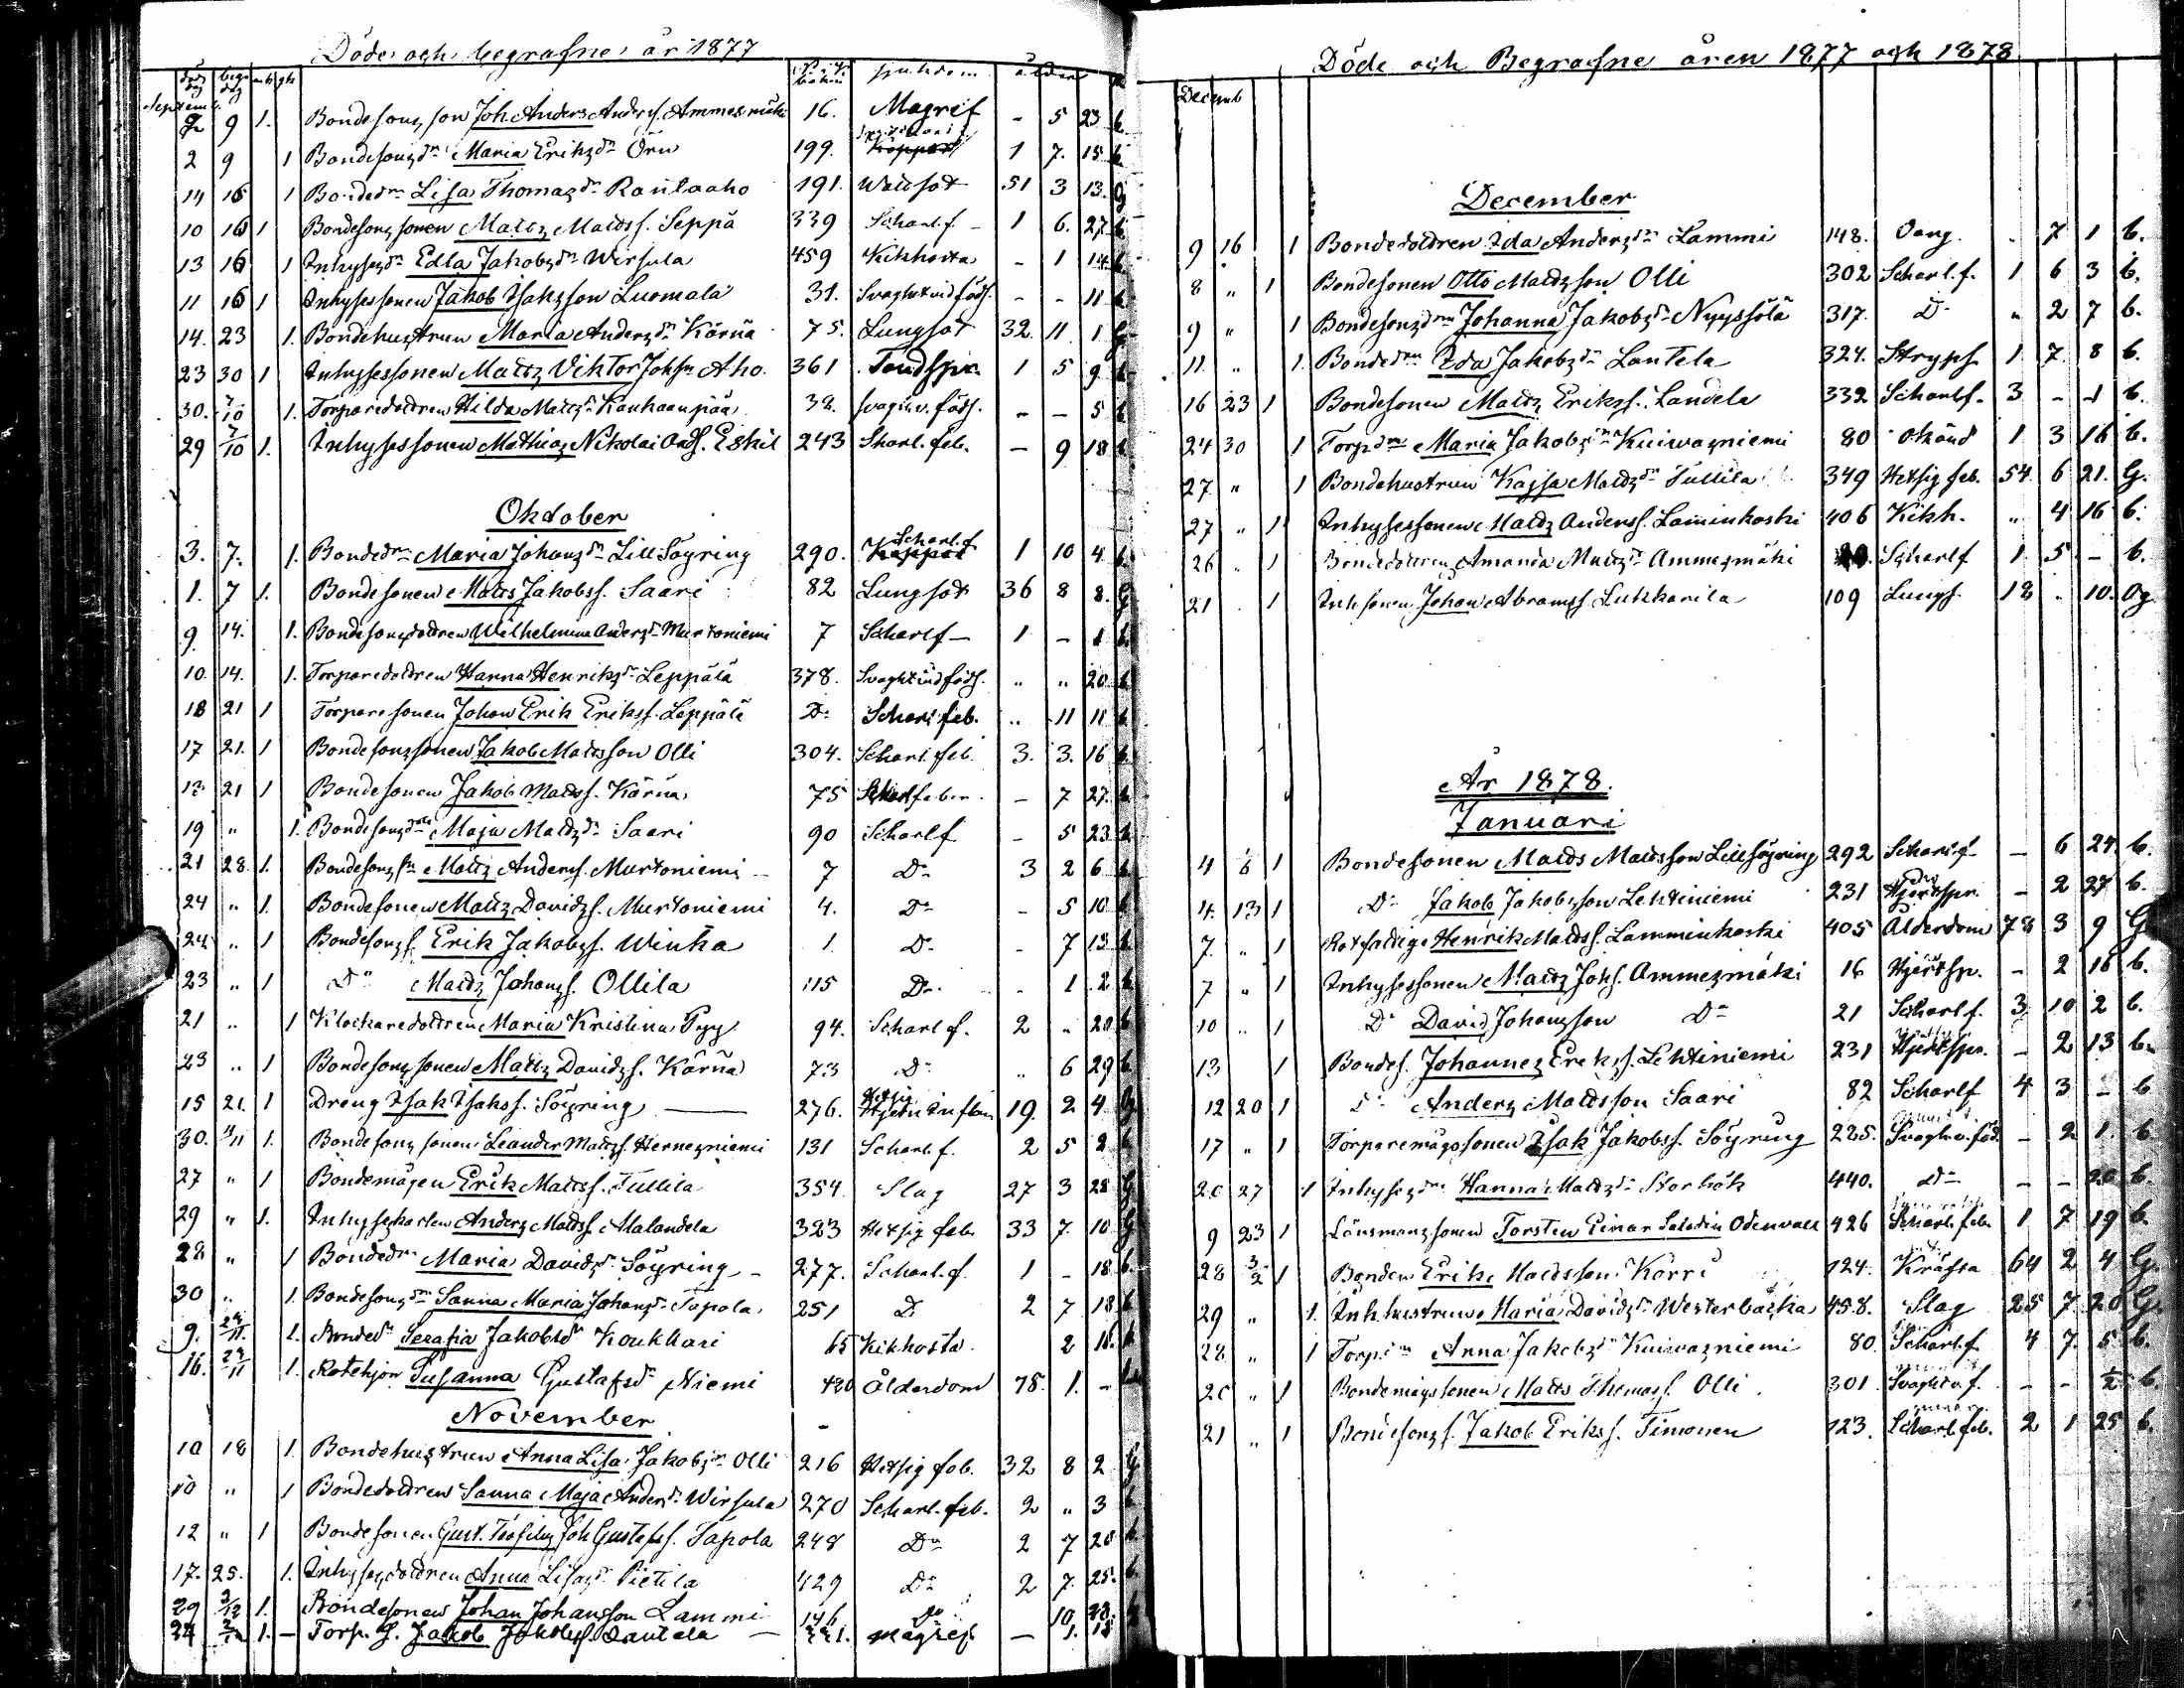 Döde och begrafne år 1877
död dag begr dag sjukdom ålder
Septemb.
2 9 1. Bondesons son Joh. Anders Anderss. Ammesmäki 16. Magref - 5 23 b.
2 9 1 Bondesonsdr Maria Eriksdr Örn 199. 1 7. 15 b.
14 16 1 Bondedrn Lisa Thomasdr Rautaaho 191. Wattsot 51 3 13. Og
10 16 1 Bondesons sonen Matts Mattss. Seppä 339 Scharl.f. - 1 6. 27 b
13 16 1 Inhysesdr Edla Jakobsdr Wirsula 459 Kikhosta - 1 14 b.
11 16 1 Inhysessonen Jakob Isaksson Luomala 31. Svaghet vid föds. - - 11 b
14. 23 1. Bondehustrun Maria Andersdr Kärnä 75. Lungsot 32 11 1 G
23 30 1 Inhysessonen Matts Viktor Johsn Aho. 361 Tandspr. 1 5 9 b
30. 7/10 1. Torparedottren Hilda Mattsdr Kauhaanpää 32. svagh.v. föds. - - 5 b
29 7/10 1. Inhysessonen Mathias Nikolai Ands. Eskil 243 Skarl. feb. - 9 18 b
Oktober
3. 7. 1. Bondedr Maria Johansdr Lill Söyring 290. Scharl.f 1 10 4 b.
1. 7 1. Bondesonen Matts Jakobss. Saari 82 Lungsot 36 8 8. G
9 14. 1. Bondesonsdottren Wilhelmina Andersdr Murtoniemi 7 Scharlf - 1 - 1 b.
10. 14. 1. Torparedottren Hanna Henriksdr Leppälä 378. Svaghet vid föds. " " 20 b
18 21 1 Torpare sonen Johan Erik Erikss. Leppälä Do Scharl feb. " 11 11 b
17 21. 1 Bondesonssonen Jakob Mattsson Olli 304. Scharl. feb. 3. 3. 16 b
13 21 1 Bondesonen Jakob Mattss. Kärnä 75 Skarlfeber. - 7 27. b
19 " 1. Bondesonsdotr Maja Mattsdr Saari 90 Scharlf - 5 23 b
21 28. 1. Bondesons sn Matts Anderss. Murtoniemi - 7 Do 3 2 6 b
24 " 1. Bondesonen Matts Davidss. Murtoniemi 4. Do - 5 10 b
24 " 1 Bondesons s. Erik Jakobss. Winka 1. Do - 7 13 b
23 " 1 Do Matts Johanss. Ollila 115 Do - 1. 2 b
21 " 1 Klockaredottren Maria Kristina Pyy 94. Scharl f. 2 " 20 b
23 " 1 Bondesonssonen Matts Davidss. Kärnä 73 Do " 6 29 b
15 21. 1 Dreng Isak Isakss. Söyring 276. Hetsig Hjern Inflam 19. 2 4 G
30. 4/11 1. Bondesons sonen Leander Mattss. Hernesniemi 131 Scharl. f. 2 5 2 b
27 " 1 Bondemågen Erik Mattss. Tullila 354. Slag 27 3 28 G
29 " 1. Inhyseskarlen Anders Mattss. Malandela 323 Hetsig feb. 33 7. 10 G
28 " 1 Bondedr Maria Davidsdr Söyring - 277. Scharl. f. 1 - 18 b.
30 " 1. Bondesonsdr Sanna Maria Johansdr Tapola 251 D 2 7 18 b
9. 24/11. 1. Bondedr Serafia Jakobsdr Koukkari 65 Kikhosta 2 16. b
16. 24/11 1. Rotehjon Susanna Gustafsdr Niemi 420 Ålderdom 78. 1. -
November
10 18 1. Bondehustrun Anna Lisa Jakobsdr Olli 216 Hetsig feb. 32 8 2 G
10 " 1 Bondedottren Sanna Maja Andersdr Wirsula 270 Scharl. feb. 2 " 3 b
12 " 1 Bondesonen Gust. Teofilus Joh Gustafss. Tapola 248 Do 2 7 20 b.
17. 25. 1. Inhysesdottren Anna Lisasdr Pietila 429 Do 2 7. 25. b.
29 2/12 1. Bondesonen Johan Johansson Lammi 146 Do 10. 28.
24 2/12 1. - Torp. s. Jakob Jakobss. Lantala - magref. - 1. 18
Döde och Begrafne åren 1877 och 1878
Decemb
December
9 16 1 Bondedottren Ida Andersdr Lammi 148. Oang. " 7 1 b.
8 " 1 Bondesonen Otto Mattsson Olli 302 Scharl. f. 1 6 3 b.
9 " 1 Bondesonsdrn Johanna Jakobsdr Nyyssölä 317. D- " 2 7 b.
11. " 1. Bondedrn Ida Jakobsdr Lantela 324. Stryps. 1. 7. 8 b.
16 23 1 Bondesonen Matts Erikss. Landela 332. Scharlf. 3 - 1 b.
24 30 1 Torpdrn Maria Jakobsdr Kuiwasniemi 80 okänd 1 3 16 b.
27 " 1 Bondehustrun Kajsa Mattsdr Tullila 349 Hetsig feb. 54. 6 21. G.
27 " 1 Inhysessonen Matts Anderss. Laminkoski 406 Kikh. " 4 16 b.
26 " 1 Bondedottren Amanda Mattsdr Ammesmäki 20. Scharlf 1. 5 - b.
21 . 1 Inh sonen Johan Abramss. Lukkarila 109 Lungs. 18 " 10. Og
År 1878.
Januari
4 6 1 Bondesonen Matts Mattsson Lillsöyring 292 Scharl.f. - 6 24. b.
4. 13 1 Do Jakob Jakobsson Lehtiniemi 231 Hjertspr. - 2 27 b.
7. " 1 Rotfattige Henrik Mattss. Lamminkoski 405 Ålderdom 78 3 9 G
7 " 1 Inhysessonen Matts Johs. Ammesmäki 16 Hjertsp. - 2 16 b.
10 " 1 Do David Johansson Do 21 Scharl f. 3. 10 2 b.
13 1 Bondes. Johannes Erikss. Lehtiniemi 231 Hjertspr. - 2 13 b.
12 20 1 Do Anders Mattsson Saari 82 Scharlf 4 3 - b
17 " 1 Torparemågssonen Isak Jakobss. Söyring 285. Svagh.v.föd. - 2 1. b
20 27 1 Inhysesdrn Hanna Mattsdr Storbök 440. Do - - 20 b.
9 23 1 Länsmanssonen Torsten Einar Saladin Odenvall 426 Scharl.feb. 1 7 19 b.
28 3/2 1 Bonden Erik Mattsson Körri 124. Kräfta 64 2 4 G.
29 " 1. Inh.hustrun Maria Davidsdr Westerbacka 458. Slag 25 7 20 G.
28 " 1 Torp.drn Anna Jakobsdr Kuiwasniemi 80. Scharl.f. 4 7. 5 b.
20 " 1 Bondemågssonen Matts Thomass. Olli 301 Svaghtv.f. - - 1/2 b.
21 " 1 Bondesonss. Jakob Erikss. Timonen 123. Scharl.feb. 2 1 25 b.